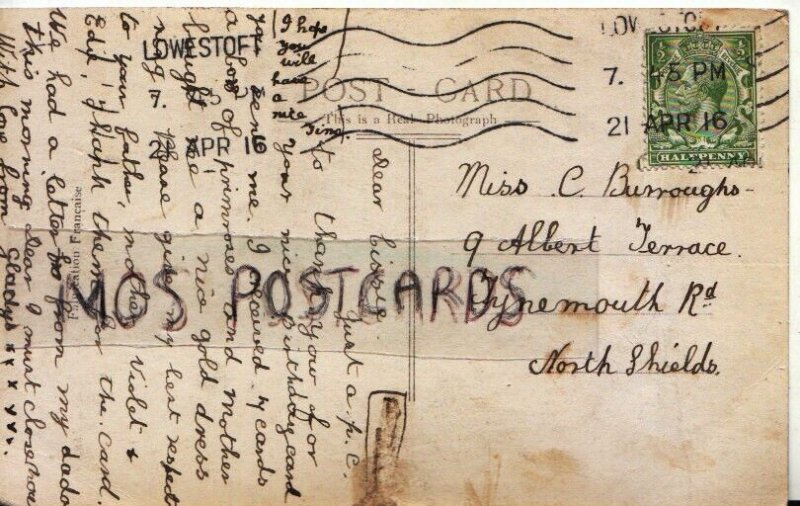 POST - CARD
This is a Real Photograph
LOWESTOFT
7.
21 APR 16
7. 45 PM
21 APR 16
HALFPENNY
Miss C. Burroughs
9 Albert Terrace.
Tynemouth Rd
North Shields.
Dear Cissie, Just a p.c.
to thank you for
your nice birthday card
you sent me. I received 7 cards
a box of primroses and mother
bought me a nice gold dress
ring. please give my best respect
to your father, mother, Violet &
Edie, & thank them for the card.
We had a letter from my dada
this morning dear I must close now
With love from Gladys x x x x x x.
I hope
you
will
have
a
nice
time.
Fabrication Francaise
MOS POSTCARDS